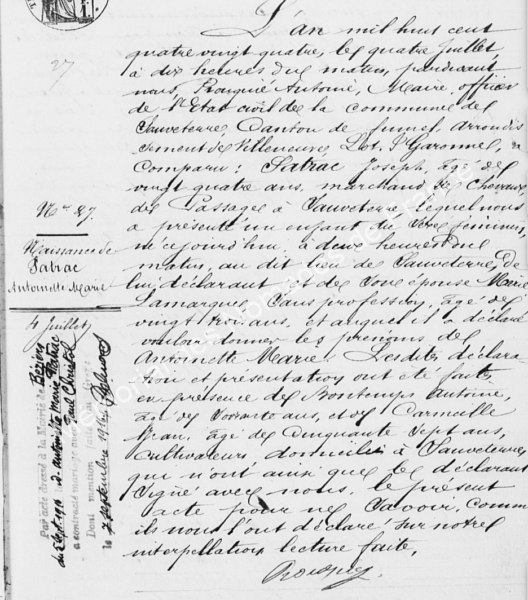 27
N° 27.
Naissance de
Patrac
Antoinette Marie
4 Juillet
Par acte dressé à la Mairie de Béziers
du 2 Sept. 1916 d. Antoinette Marie Patrac
a contracté mariage avec Paul
Dont mention
le 7 septembre 1916
L'an mil huit cent
quatre vingt quatre, le quatre Juillet,
à dix heures du matin, pardevant
nous, Rouquié Antoine, Maire, officier
de l'Etat civil de la Commune de
Sauveterre, Canton de fumel, arrondis
sement de Villeneuve, Lot & Garonne, a
Comparu: Patrac Joseph, âgé de
vingt quatre ans, marchand de Chevaux,
de Passage à Sauveterre lequel nous
a présenté un enfant du Sexe féminin,
né cejourd'hui, à deux heures du
matin, au dit lieu de Sauveterre, de
lui déclarant et de Son épouse Marie
Lamarque, Sans profession, âgé de
vingt trois ans, et auquel il a déclaré
vouloir donner les prénoms de
Antoinette Marie. Lesdites déclara-
tion et présentation ont été faites
en présence de Bontemps Antoine,
âgé de Soixante ans, et de Carmeille
Jean, âgé de Cinquante Sept ans,
Cultivateurs domiciliés à Sauveterre
qui n'ont ainsi que le déclarant
Signé avec nous, le présent
acte pour ne Savoir, comme
ils nous l'ont déclaré sur notre
interpellation lecture faite.